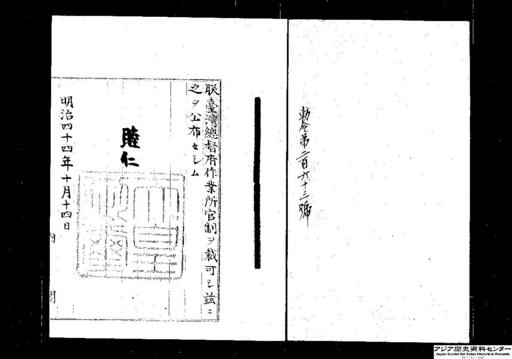 勅令第二百六十三號
朕臺灣總督府作業所官制ヲ裁可シ茲ニ
之ヲ公布セシム
睦仁
明治四十四年十月十四日
内閣
アジア歴史資料センター
Japan Center for Asian Historical Records